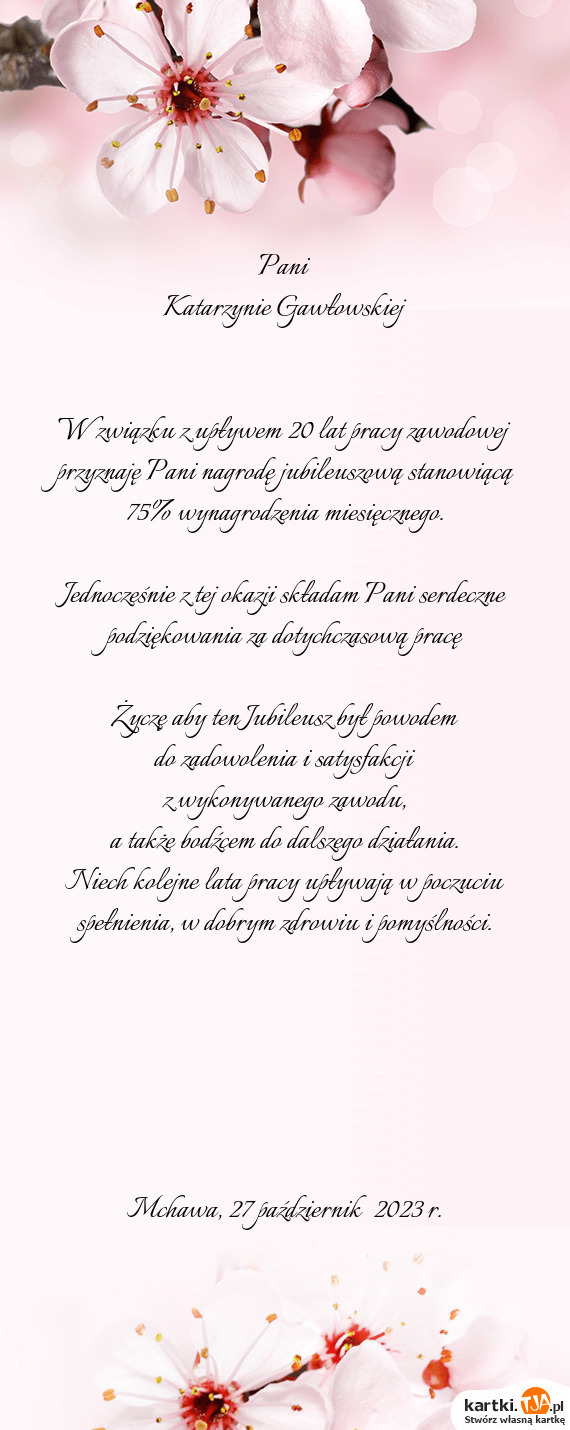 Pani
Katarzynie Gawłowskiej
W związku z upływem 20 lat pracy zawodowej
przyznaję Pani nagrodę jubileuszową stanowiącą
75% wynagrodzenia miesięcznego.
Jednocześnie z tej okazji składam Pani serdeczne
podziękowania za dotychczasową pracę
Życzę aby ten Jubileusz był powodem
do zadowolenia i satysfakcji
z wykonywanego zawodu,
a także bodźcem do dalszego działania.
Niech kolejne lata pracy upływają w poczuciu
spełnienia, w dobrym zdrowiu i pomyślności.
Mchawa, 27 październik 2023 r.
kartki.TJA.pl
Stwórz własną kartkę